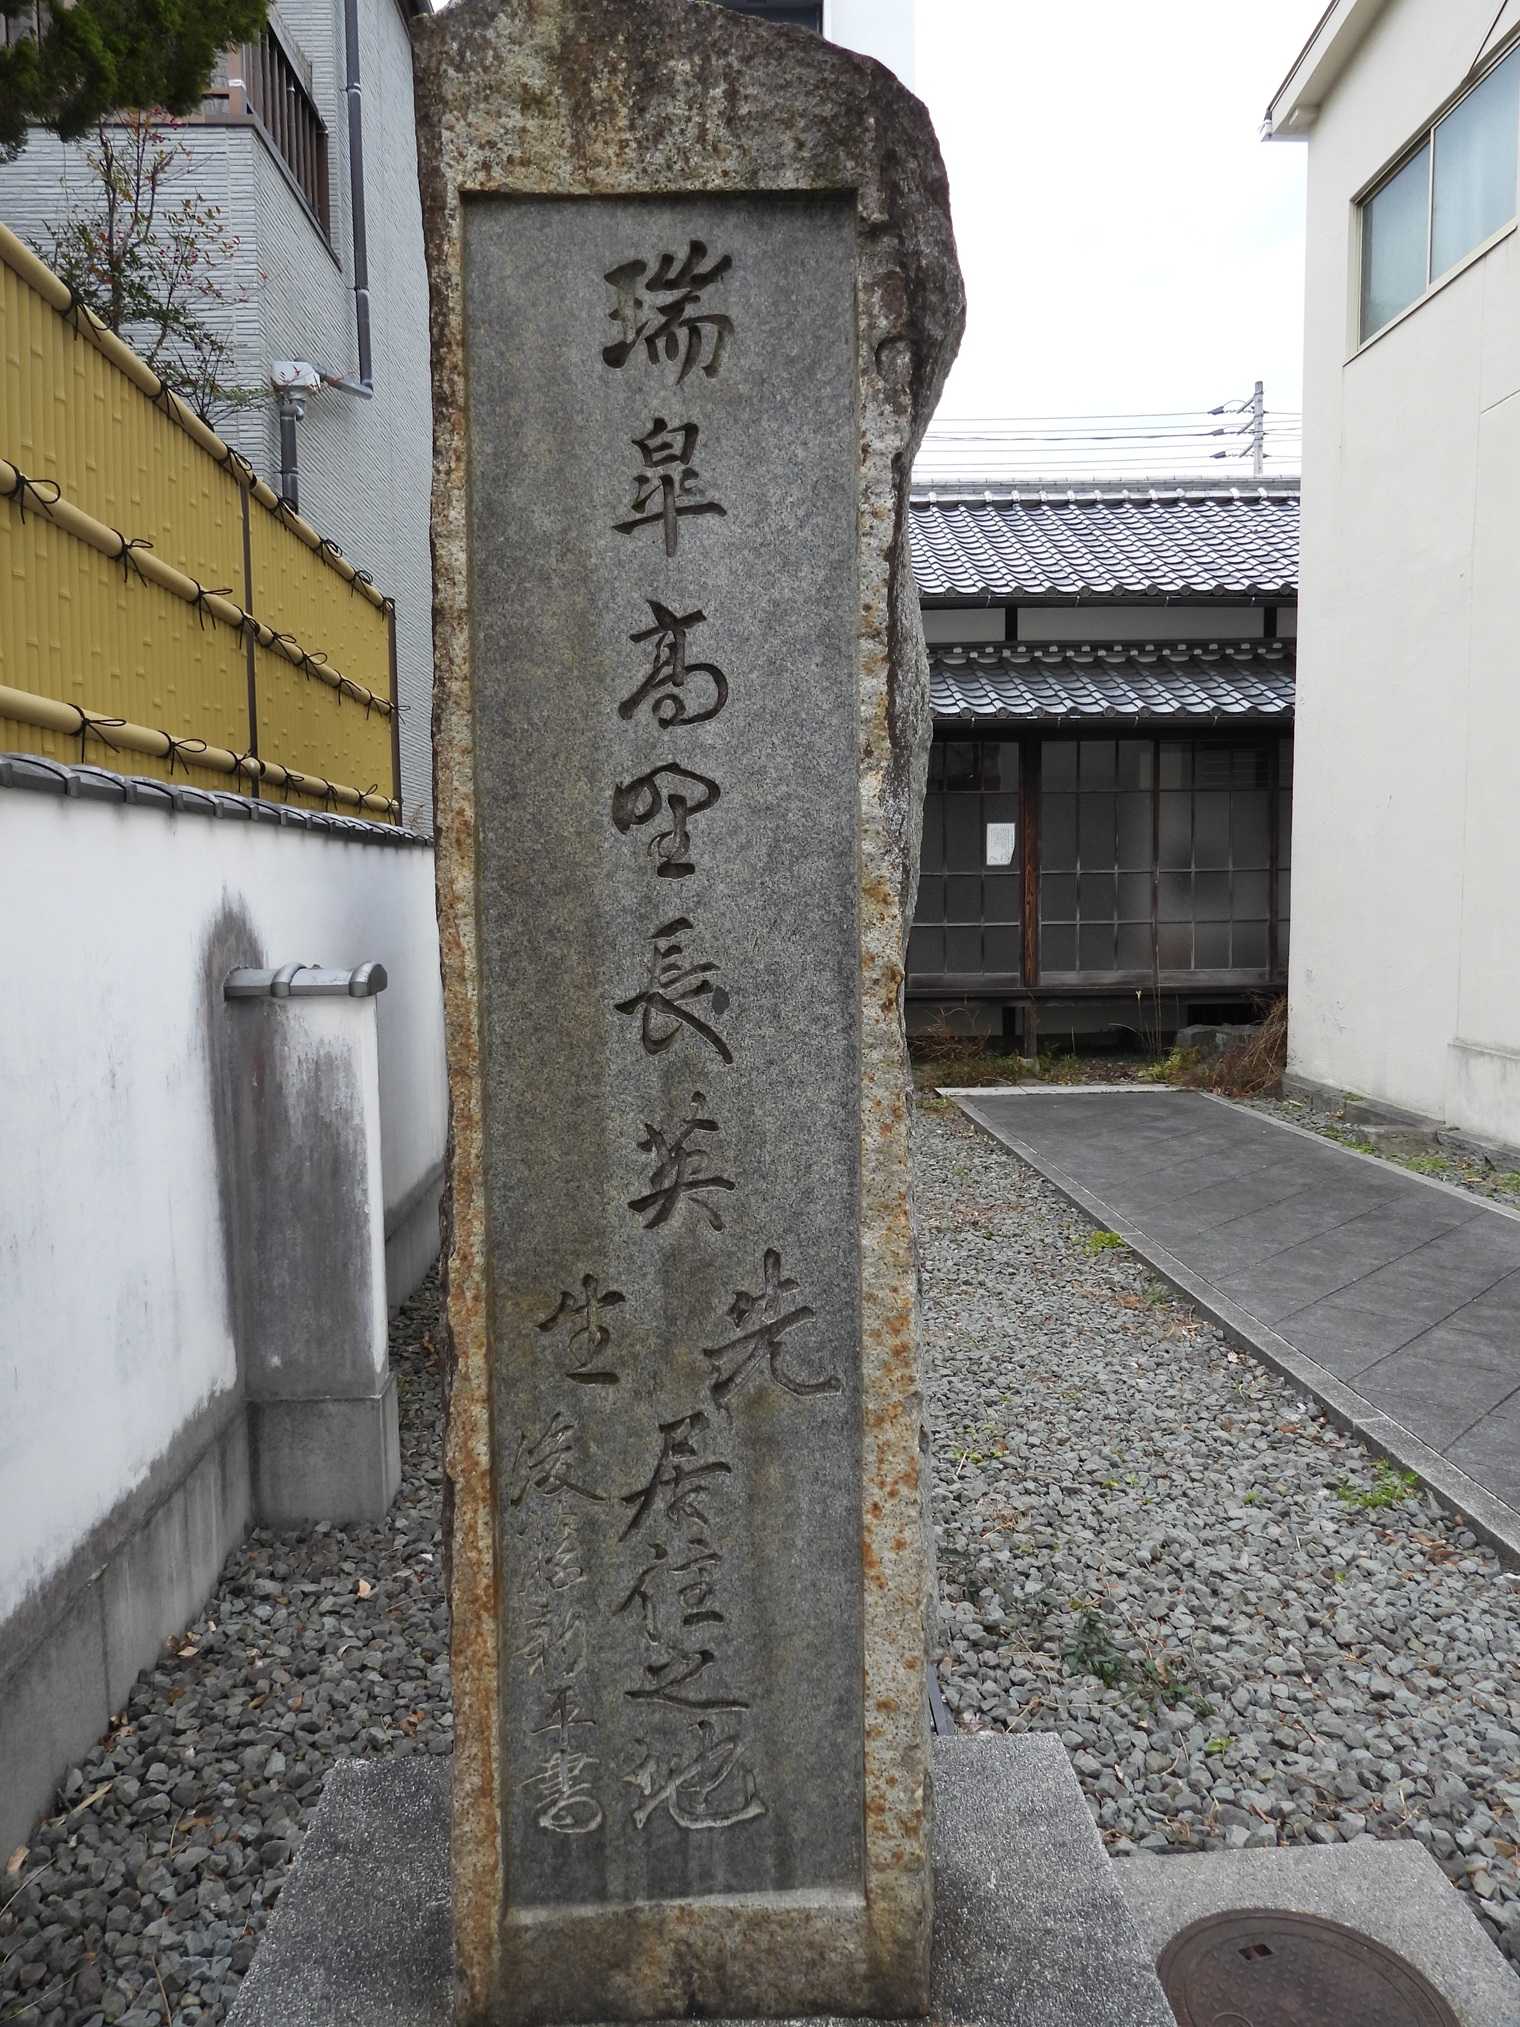 瑞皐高野長英先生居住之地
後藤新平書